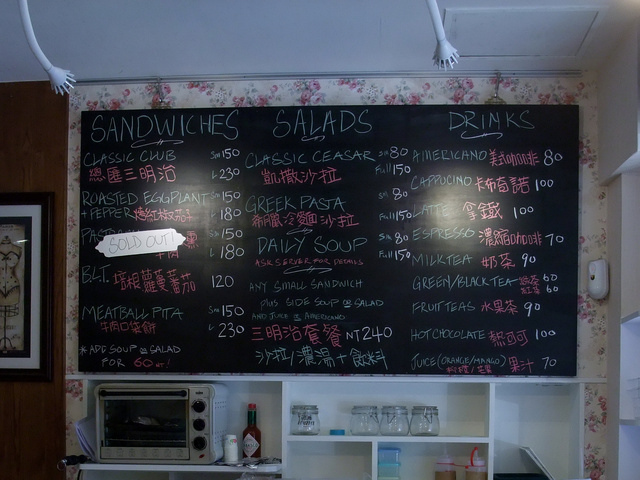 SANDWICHES
CLASSIC CLUB Sm 150
總匯三明治 L 230
ROASTED EGGPLANT Sm 150
+ PEPPER 燒紅椒茄子 L 180
SOLD OUT!
150
牛肉 L 180
B.L.T. 培根蘿蔓蕃茄 120
MEATBALL PITA Sm 150
牛肉口袋餅 L 230
*ADD SOUP OR SALAD
FOR 60 NT!
SALADS
CLASSIC CEASAR Sm 80
凱撒沙拉 Full 150
GREEK PASTA Sm 80
希臘冷麵沙拉 Full 150
DAILY SOUP Sm 80
ASK SERVER FOR DETAILS Full 150
ANY SMALL SANDWICH
PLUS SIDE SOUP OR SALAD
AND JUICE OR AMERICANO
三明治套餐 NT 240
沙拉/濃湯+飲料
DRINKS
AMERICANO 美式咖啡 80
CAPPUCINO 卡布奇諾 100
LATTE 拿鐵 100
ESPRESSO 濃縮咖啡 70
MILK TEA 奶茶 90
GREEN/BLACK TEA 綠茶 60
紅茶 60
FRUIT TEAS 水果茶 90
HOT CHOCOLATE 熱可可 100
JUICE (ORANGE/MANGO) 果汁 70